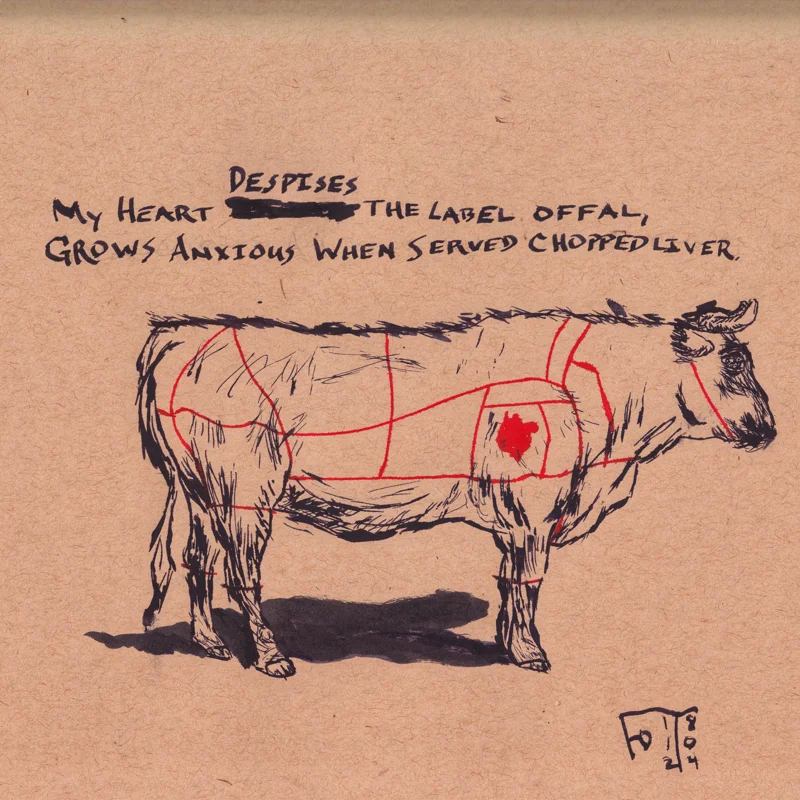 DESPISES
MY HEART THE LABEL OFFAL,
GROWS ANXIOUS WHEN SERVED CHOPPED LIVER.